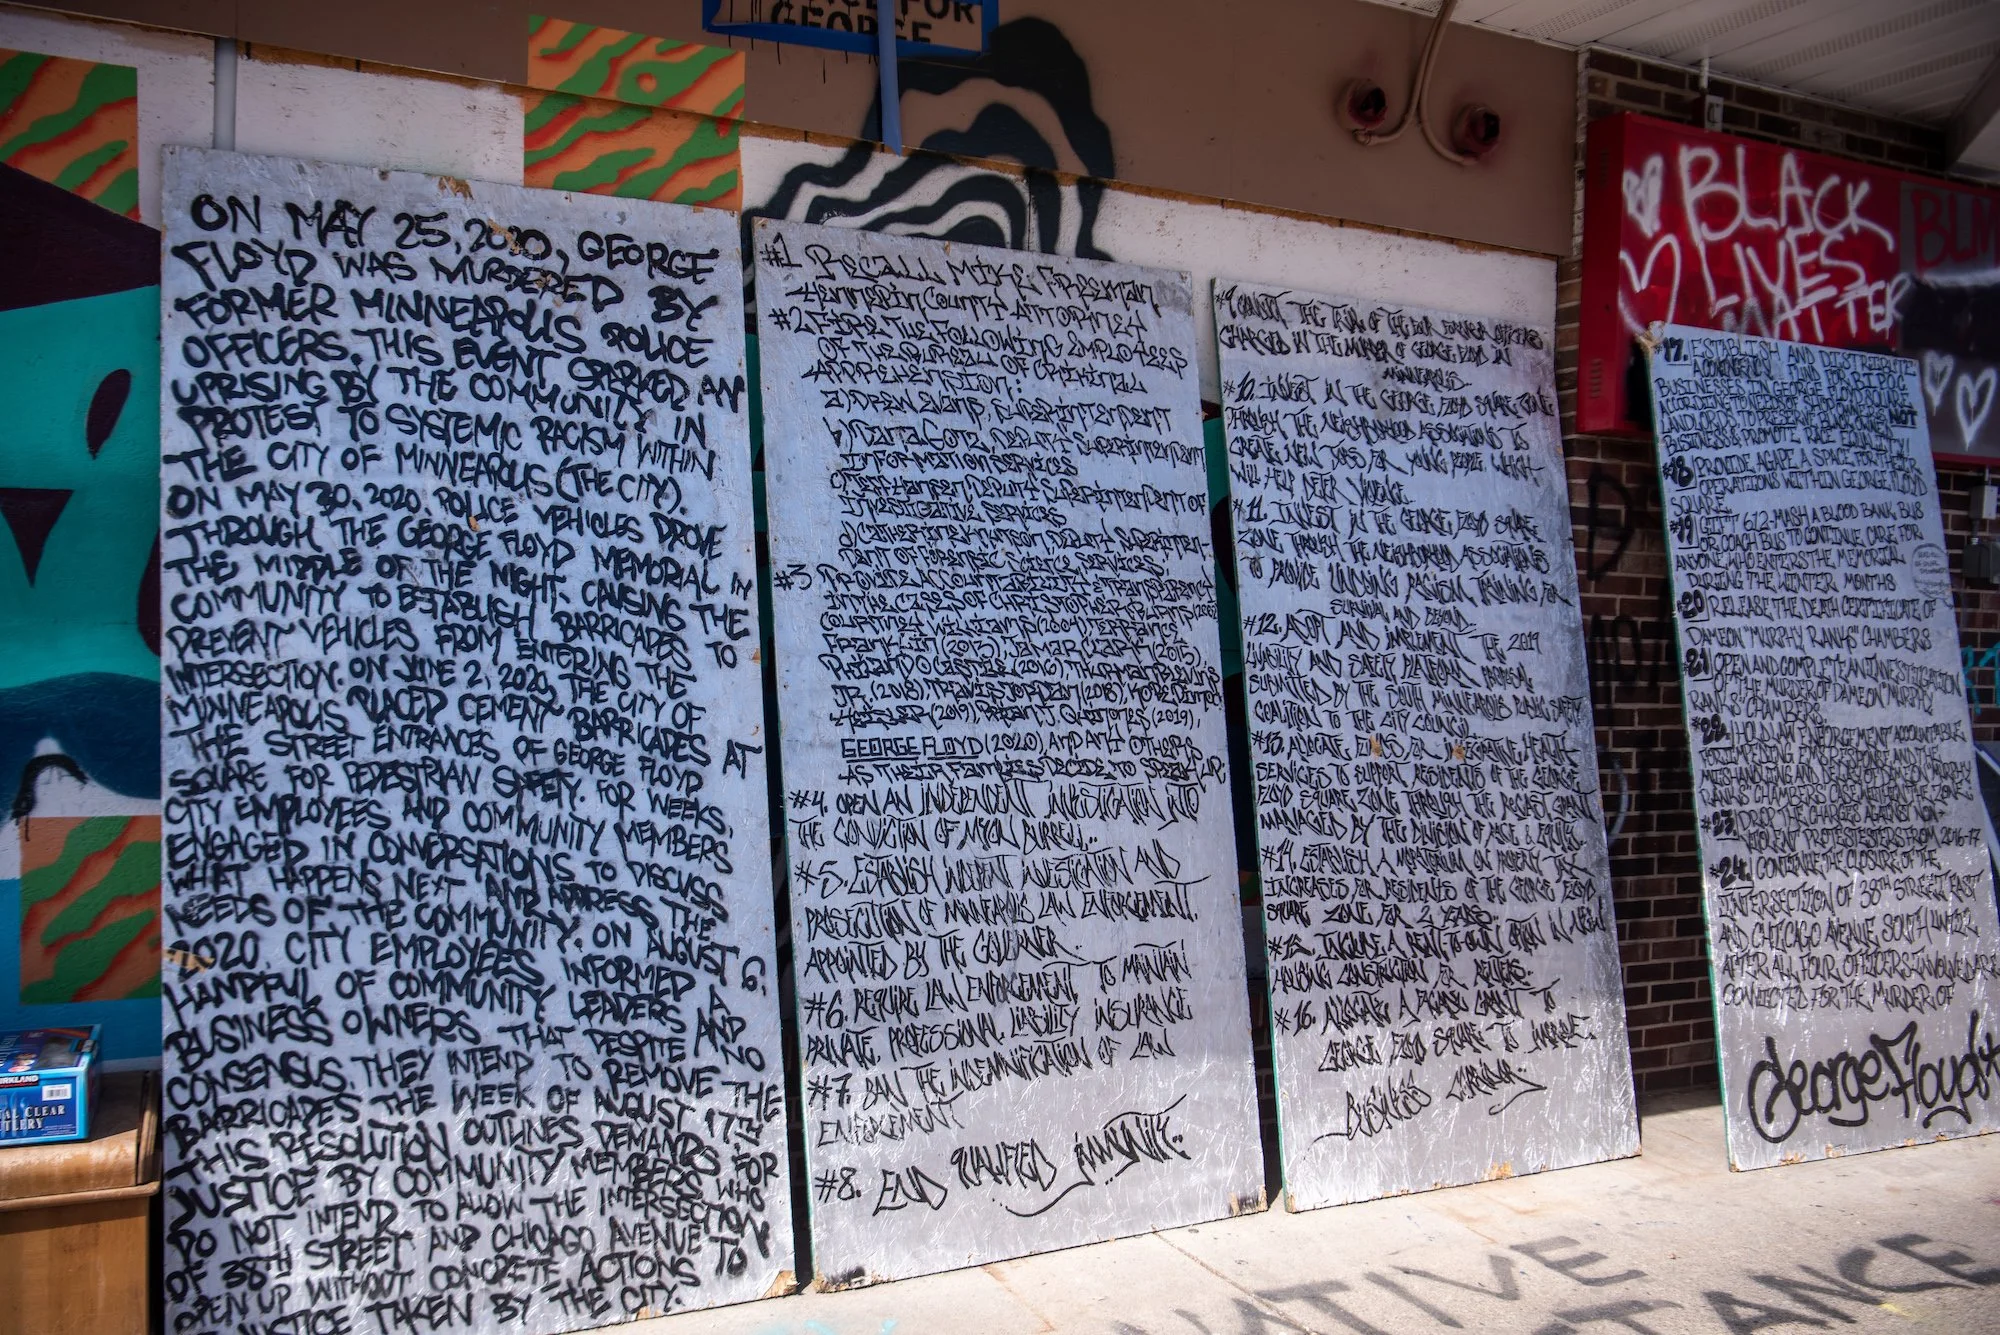 FOR
GEORGE
ON MAY 25, 2020, GEORGE
FLOYD WAS MURDERED BY
FORMER MINNEAPOLIS POLICE
OFFICERS. THIS EVENT SPARKED AN
UPRISING BY THE COMMUNITY IN
PROTEST TO SYSTEMIC RACISM WITHIN
THE CITY OF MINNEAPOLIS (THE CITY).
ON MAY 30, 2020, POLICE VEHICLES DROVE
THROUGH THE GEORGE FLOYD MEMORIAL IN
THE MIDDLE OF THE NIGHT, CAUSING THE
COMMUNITY TO ESTABLISH BARRICADES TO
PREVENT VEHICLES FROM ENTERING THE
INTERSECTION. ON JUNE 2, 2020, THE CITY OF
MINNEAPOLIS PLACED CEMENT BARRICADES AT
THE STREET ENTRANCES OF GEORGE FLOYD
SQUARE FOR PEDESTRIAN SAFETY. FOR WEEKS,
CITY EMPLOYEES AND COMMUNITY MEMBERS
ENGAGED IN CONVERSATIONS TO DISCUSS
WHAT HAPPENS NEXT AND ADDRESS THE
NEEDS OF THE COMMUNITY. ON AUGUST 6,
2020 CITY EMPLOYEES INFORMED A
HANDFUL OF COMMUNITY LEADERS AND
BUSINESS OWNERS THAT DESPITE NO
CONSENSUS THEY INTEND TO REMOVE THE
BARRICADES THE WEEK OF AUGUST 17TH.
THIS RESOLUTION OUTLINES DEMANDS FOR
JUSTICE BY COMMUNITY MEMBERS WHO
DO NOT INTEND TO ALLOW THE INTERSECTION
OF 38TH STREET AND CHICAGO AVENUE TO
OPEN UP WITHOUT CONCRETE ACTIONS
JUSTICE TAKEN BY THE CITY.
#1 RECALL MIKE FREEMAN
HENNEPIN COUNTY ATTORNEY
#2 FIRE THE FOLLOWING EMPLOYEES
OF THE BUREAU OF CRIMINAL
APPREHENSION:
a) DREW EVANS, SUPERINTENDENT
b) DANA GOTZ, DEPUTY SUPERINTENDENT
INFORMATION SERVICES
c) JEFF HANSEN, DEPUTY SUPERINTENDENT OF
INVESTIGATIVE SERVICES
d) CATHERINE KNUTSON, DEPUTY SUPERINTEN-
DENT OF FORENSIC SCIENCE SERVICES.
#3 PROVIDE ACCOUNTABILITY & TRANSPARENCY
IN THE CASES OF CHRISTOPHER BURNS (2002)
COURTNEY WILLIAMS (2004), TERRANCE
FRANKLIN (2013), JAMAR CLARK (2015),
PHILANDO CASTILE (2016), THURMAN BLEVINS
JR. (2018), TRAVIS JORDAN (2018), KOBE DIMOCK-
HEISLER (2019), BRIAN J. QUINONES (2019),
GEORGE FLOYD (2020), AND ANY OTHERS
AS THEIR FAMILIES DECIDE TO SPEAK UP
#4. OPEN AN INDEPENDENT INVESTIGATION INTO
THE CONVICTION OF MYON BURRELL..
#5. ESTABLISH INDEPENT INVESTIGATION AND
PROSECUTION OF MINNEAPOLIS LAW ENFORCEMENT,
APPOINTED BY THE GOVERNER..
#6. REQUIRE LAW ENFORCEMENT TO MAINTAIN
PRIVATE, PROFESSIONAL, LIABILITY INSURANCE
#7. BAN THE INDEMNIFICATION OF LAW
ENFORCEMENT
#8. END QUALIFIED IMMUNITY..
#9 CONDUCT THE TRIAL OF THE FOUR FORMER OFFICERS
CHARGED IN THE MURDER OF GEORGE FLOYD IN
MINNEAPOLIS
#10. INVEST IN THE GEORGE FLOYD SQUARE ZONE
THROUGH THE NEIGHBORHOOD ASSOCIATIONS TO
CREATE NEW JOBS FOR YOUNG PEOPLE, WHICH
WILL HELP DETER VIOLENCE
#11. INVEST IN THE GEORGE FLOYD SQUARE
ZONE THROUGH THE NEIGHBORHOOD ASSOCIATIONS
TO PROVIDE UNDOING RACISM TRAINING FOR
SURVIVAL AND BEYOND..
#12. ADOPT AND IMPLEMENT THE 2019
LIVABILITY AND SAFETY PLATFORM PROPOSAL
SUBMITTED BY THE SOUTH MINNEAPOLIS PUBLIC SAFETY
COALITION TO THE CITY COUNCIL
#13. ALLOCATE FUNDS FOR INTEGRATIVE HEALTH
SERVICES TO SUPPORT RESIDENTS OF THE GEORGE
FLOYD SQUARE ZONE THROUGH THE RECAST GRANT
MANAGED BY THE DIVISION OF RACE & EQUITY.
#14. ESTABLISH A MORATORIUM ON PROPERTY TAX
INCREASES FOR RESIDENTS OF THE GEORGE FLOYD
SQUARE ZONE FOR 2 YEARS..
#15. INCLUDE A RENT-TO-OWN OPTION IN NEW
HOUSING CONSTRUCTION FOR RENTERS..
#16. ALLOCATE A FACADE GRANT TO
GEORGE FLOYD SQUARE TO IMPROVE
BUSINESS
BLACK
LIVES
MATTER
BLM
#17. ESTABLISH AND DISTRIBUTE
A CONTINGENCY FUND FOR BIPOC
BUSINESSES IN GEORGE FLOYD SQUARE
ACCORDING TO NEEDS OF SHOP OWNERS NOT
LANDLORDS TO PRESERVE BLACK OWNED
BUSINESS & PROMOTE RACE EQUALITY!
#18 PROVIDE AGAPE A SPACE FOR THEIR
OPERATIONS WITHIN GEORGE FLOYD
SQUARE.
#19 GIFT 612-MASH A BLOOD BANK, BUS
OR COACH BUS TO CONTINUE CARE FOR
ANYONE WHO ENTERS THE MEMORIAL
DURING THE WINTER MONTHS
#20 RELEASE THE DEATH CERTIFICATE OF
DAMEON "MURPHY RANKS" CHAMBERS
#21 OPEN AND COMPLETE AN INVESTIGATION
OF THE MURDER OF DAMEON "MURPHY
RANKS" CHAMBERS.
#22. HOLD LAW ENFORCEMENT ACCOUNTABLE
FOR IMPEDING EMP RESPONSE AND THE
MISHANDLING AND DELAY OF DAMEON "MURPHY
RANKS" CHAMBERS CASE WITHIN THE ZONE.
#23. DROP THE CHARGES AGAINST NON-
VIOLENT PROTESTESTERS FROM 2016-17
#24. CONTINUE THE CLOSURE OF THE
INTERSECTION OF 38TH STREET EAST
AND CHICAGO AVENUE SOUTH UNTIL
AFTER ALL FOUR OFFICERS INVOLVED ARE
CONVICTED FOR THE MURDER OF
George Floyd
KIRKLAND
CLEAR
CUTLERY